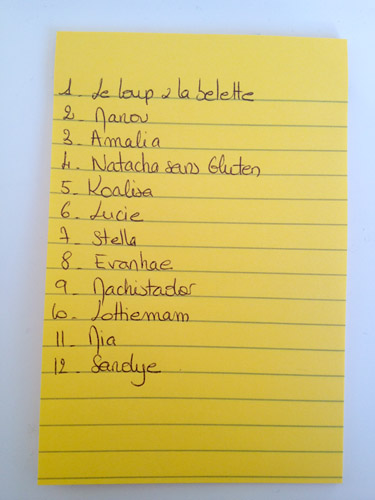 1_ Le loup & la belette
2_ Manou
3_ Amalia
4_ Natacha sans Gluten
5_ Koalisa
6_ Lucie
7_ Stella
8_ Evanhae
9_ Machistador
10_ Lottiemam
11_ Mia
12_ Sandye